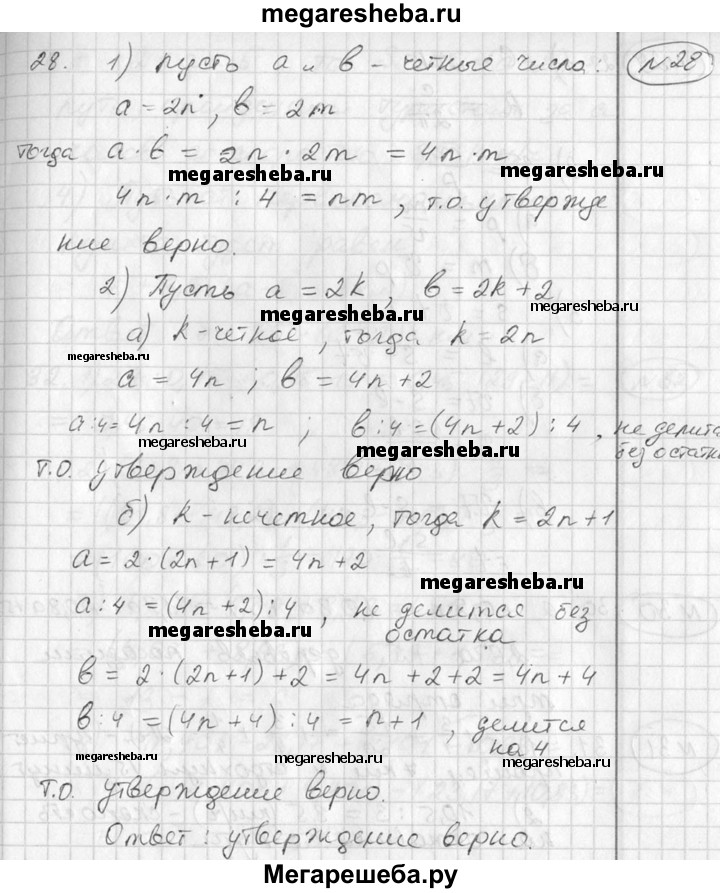 megaresheba.ru
28. 1) пусть a и b - четные числа: №28
a = 2n, b = 2m
тогда a · b = 2n · 2m = 4n · m
megaresheba.ru megaresheba.ru
4n · m : 4 = nm, т.о. утвержде
ние верно.
2) Пусть a = 2k, b = 2k + 2
megaresheba.ru megaresheba.ru
а) k - четное, тогда k = 2n
megaresheba.ru
a = 4n ; b = 4n + 2
a : 4 = 4n : 4 = n ; b : 4 = (4n + 2) : 4, не делится
megaresheba.ru megaresheba.ru без остатка
т.о. утверждение верно
б) k - нечетное, тогда k = 2n + 1
a = 2 · (2n + 1) = 4n + 2
megaresheba.ru
a : 4 = (4n + 2) : 4, не делится без
megaresheba.ru остатка
b = 2 · (2n + 1) + 2 = 4n + 2 + 2 = 4n + 4
b : 4 = (4n + 4) : 4 = n + 1, делится
на 4
megaresheba.ru megaresheba.ru
т.о. утверждение верно.
Ответ: утверждение верно.
Мегарешеба.ру